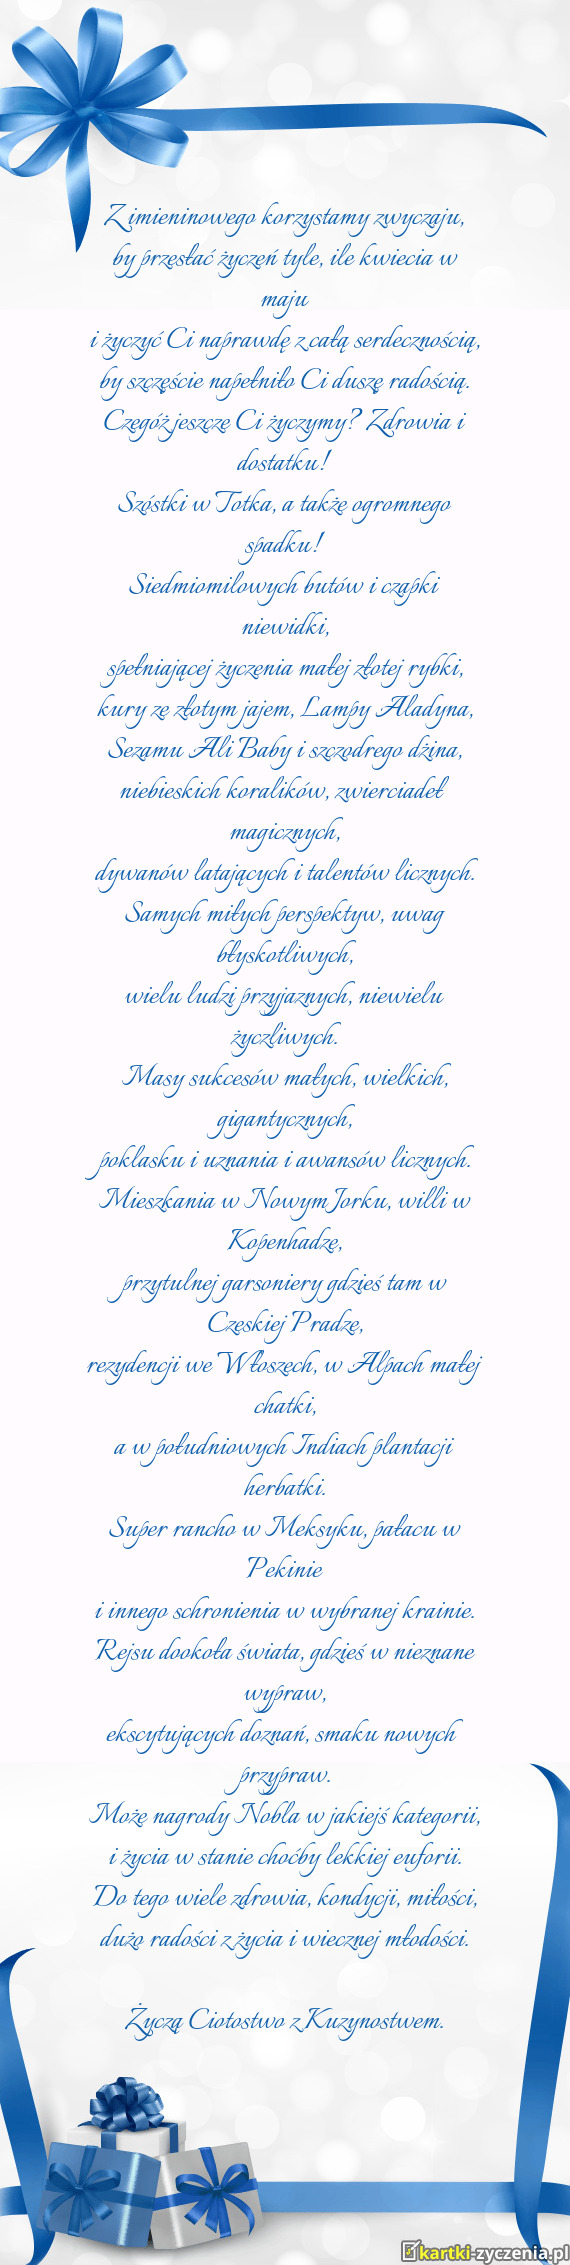 Z imieninowego korzystamy zwyczaju,
by przesłać życzeń tyle, ile kwiecia w
maju
i życzyć Ci naprawdę z całą serdecznością,
by szczęście napełniło Ci duszę radością.
Czegóż jeszcze Ci życzymy? Zdrowia i
dostatku!
Szóstki w Totka, a także ogromnego
spadku!
Siedmiomilowych butów i czapki
niewidki,
spełniającej życzenia małej złotej rybki,
kury ze złotym jajem, Lampy Aladyna,
Sezamu Ali Baby i szczodrego dżina,
niebieskich koralików, zwierciadeł
magicznych,
dywanów latających i talentów licznych.
Samych miłych perspektyw, uwag
błyskotliwych,
wielu ludzi przyjaznych, niewielu
życzliwych.
Masy sukcesów małych, wielkich,
gigantycznych,
poklasku i uznania i awansów licznych.
Mieszkania w Nowym Jorku, willi w
Kopenhadze,
przytulnej garsoniery gdzieś tam w
Czeskiej Pradze,
rezydencji we Włoszech, w Alpach małej
chatki,
a w południowych Indiach plantacji
herbatki.
Super rancho w Meksyku, pałacu w
Pekinie
i innego schronienia w wybranej krainie.
Rejsu dookoła świata, gdzieś w nieznane
wypraw,
ekscytujących doznań, smaku nowych
przypraw.
Może nagrody Nobla w jakiejś kategorii,
i życia w stanie choćby lekkiej euforii.
Do tego wiele zdrowia, kondycji, miłości,
dużo radości z życia i wiecznej młodości.
Życzą Ciotostwo z Kuzynostwem.
kartki-zyczenia.pl